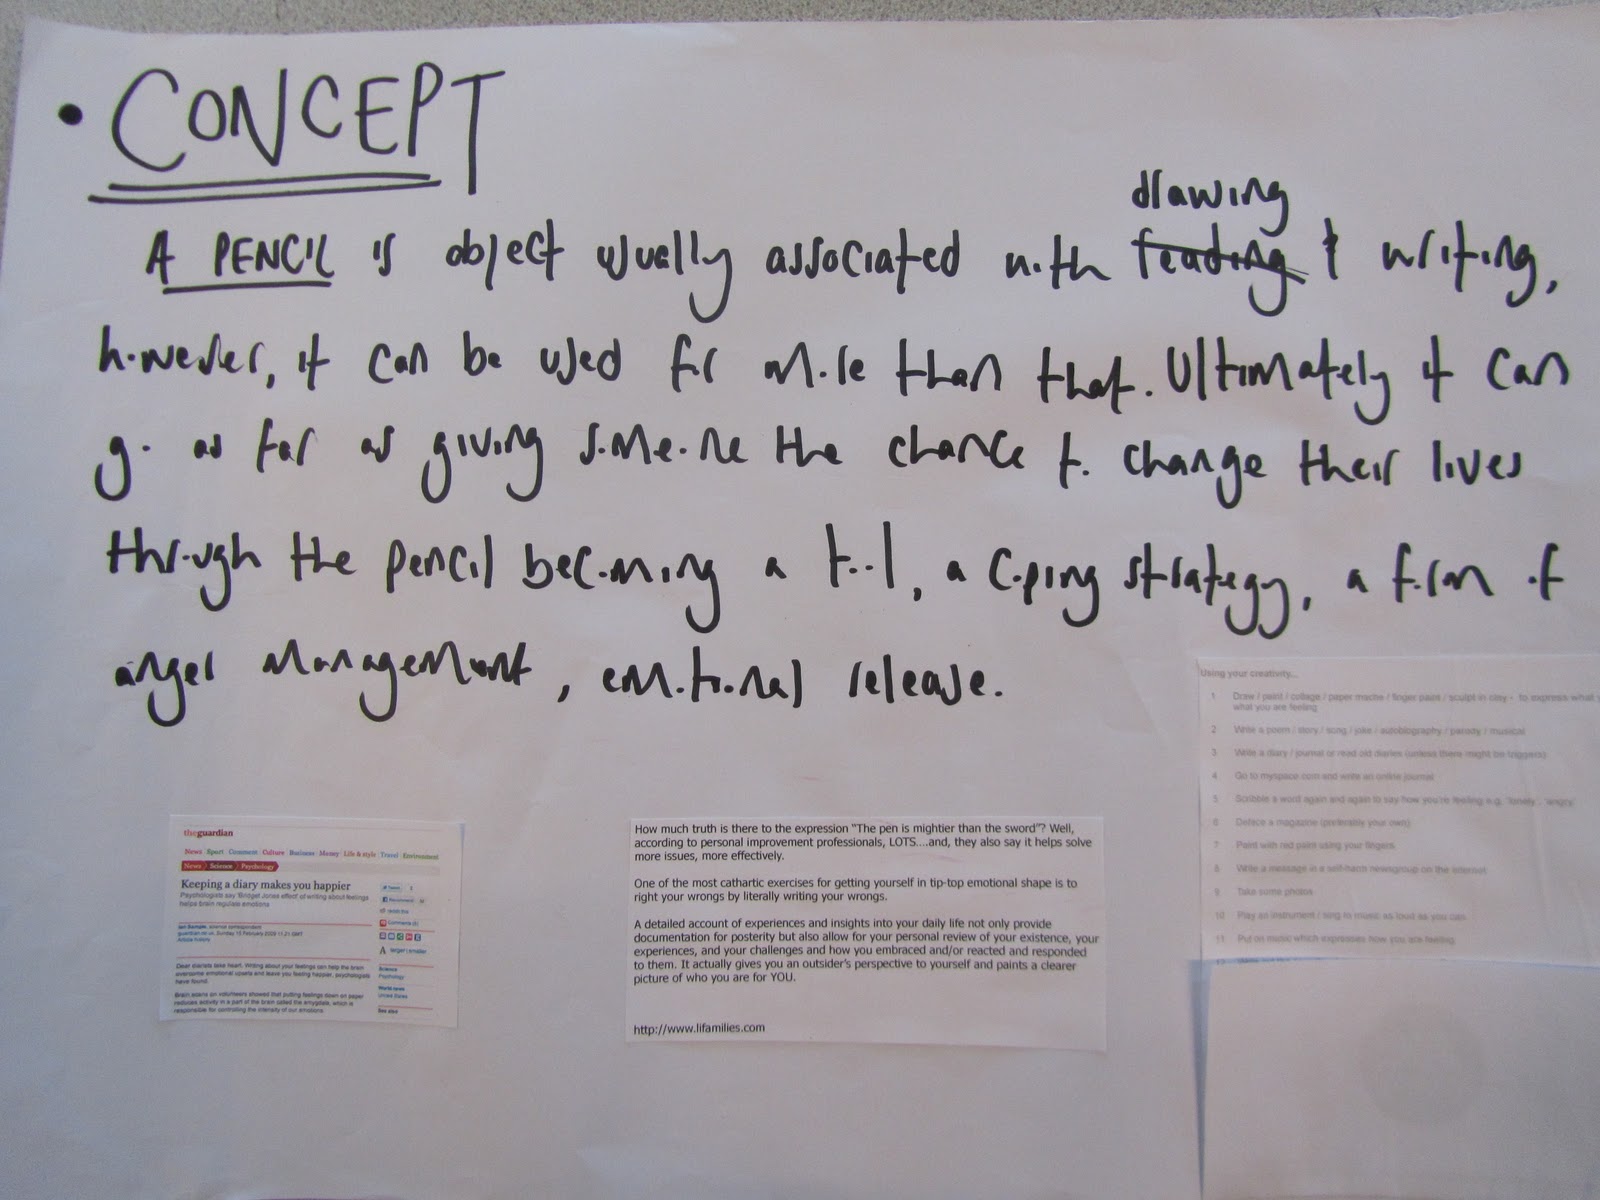 • CONCEPT
drawing
A PENCIL is object usually associated with reading & writing,
however, it can be used for more than that. Ultimately it can
go as far as giving someone the chance to change their lives
through the pencil becoming a tool, a coping strategy, a form of
anger management, emotional release.
theguardian
News Sport Comment Culture Business Money Life & style Travel Environment
News Science Psychology
Keeping a diary makes you happier
Psychologists say 'Bridget Jones effect' of writing about feelings
helps brain regulate emotions
Ian Sample, science correspondent
guardian.co.uk, Sunday 15 February 2009
Article history
Dear diarists take heart. Writing about your feelings can help the brain
overcome emotional upsets and leave you feeling happier, psychologists
have found.
Brain scans on volunteers showed that putting feelings down on paper
reduces activity in a part of the brain called the amygdala, which is
responsible for controlling the intensity of our emotions.
Tweet
Recommend
Comments
A larger | smaller
Science
Psychology
World news
United States
See also
How much truth is there to the expression "The pen is mightier than the sword"? Well,
according to personal improvement professionals, LOTS....and, they also say it helps solve
more issues, more effectively.
One of the most cathartic exercises for getting yourself in tip-top emotional shape is to
right your wrongs by literally writing your wrongs.
A detailed account of experiences and insights into your daily life not only provide
documentation for posterity but also allow for your personal review of your existence, your
experiences, and your challenges and how you embraced and/or reacted and responded
to them. It actually gives you an outsider's perspective to yourself and paints a clearer
picture of who you are for YOU.
http://www.lifamilies.com
Using your creativity...
1 Draw / paint / collage / paper mache / finger paint / sculpt in clay - to express what
what you are feeling
2 Write a poem / story / song / joke / autobiography / parody / musical
3 Write a diary / journal or read old diaries (unless there might be triggers)
4 Go to myspace.com and write an online journal
5 Scribble a word again and again to say how you're feeling e.g. 'lonely', 'angry'
6 Deface a magazine (preferably your own)
7 Paint with red paint using your fingers
8 Write a message in a self-harm newsgroup on the internet
9 Take some photos
10 Play an instrument / sing to music as loud as you can
11 Put on music which expresses how you are feeling